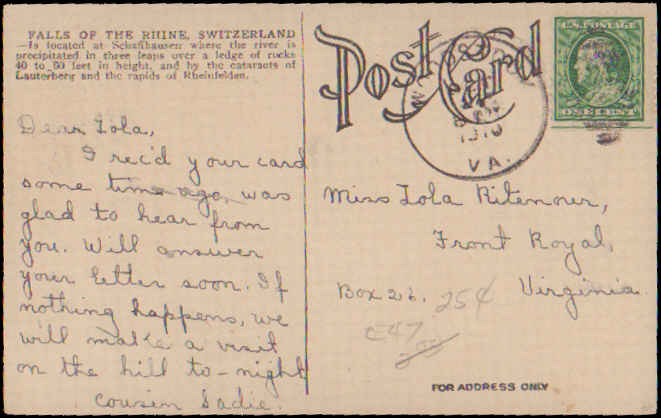 FALLS OF THE RHINE, SWITZERLAND
—Is located at Schaffhausen where the river is
precipitated in three leaps over a ledge of rocks
40 to 60 feet in height, and by the cataracts of
Lauterberg and the rapids of Rheinfelden.
Dear Lola,
I rec'd your card
some time ago, was
glad to hear from
you. Will answer
your letter soon. If
nothing happens, we
will make a visit
on the hill to-night
Cousin Sadie.
Post Card
1910
VA.
U.S. POSTAGE
ONE CENT
Miss Lola Ritenour,
Front Royal,
Box 26. 25¢ Virginia.
C47
FOR ADDRESS ONLY